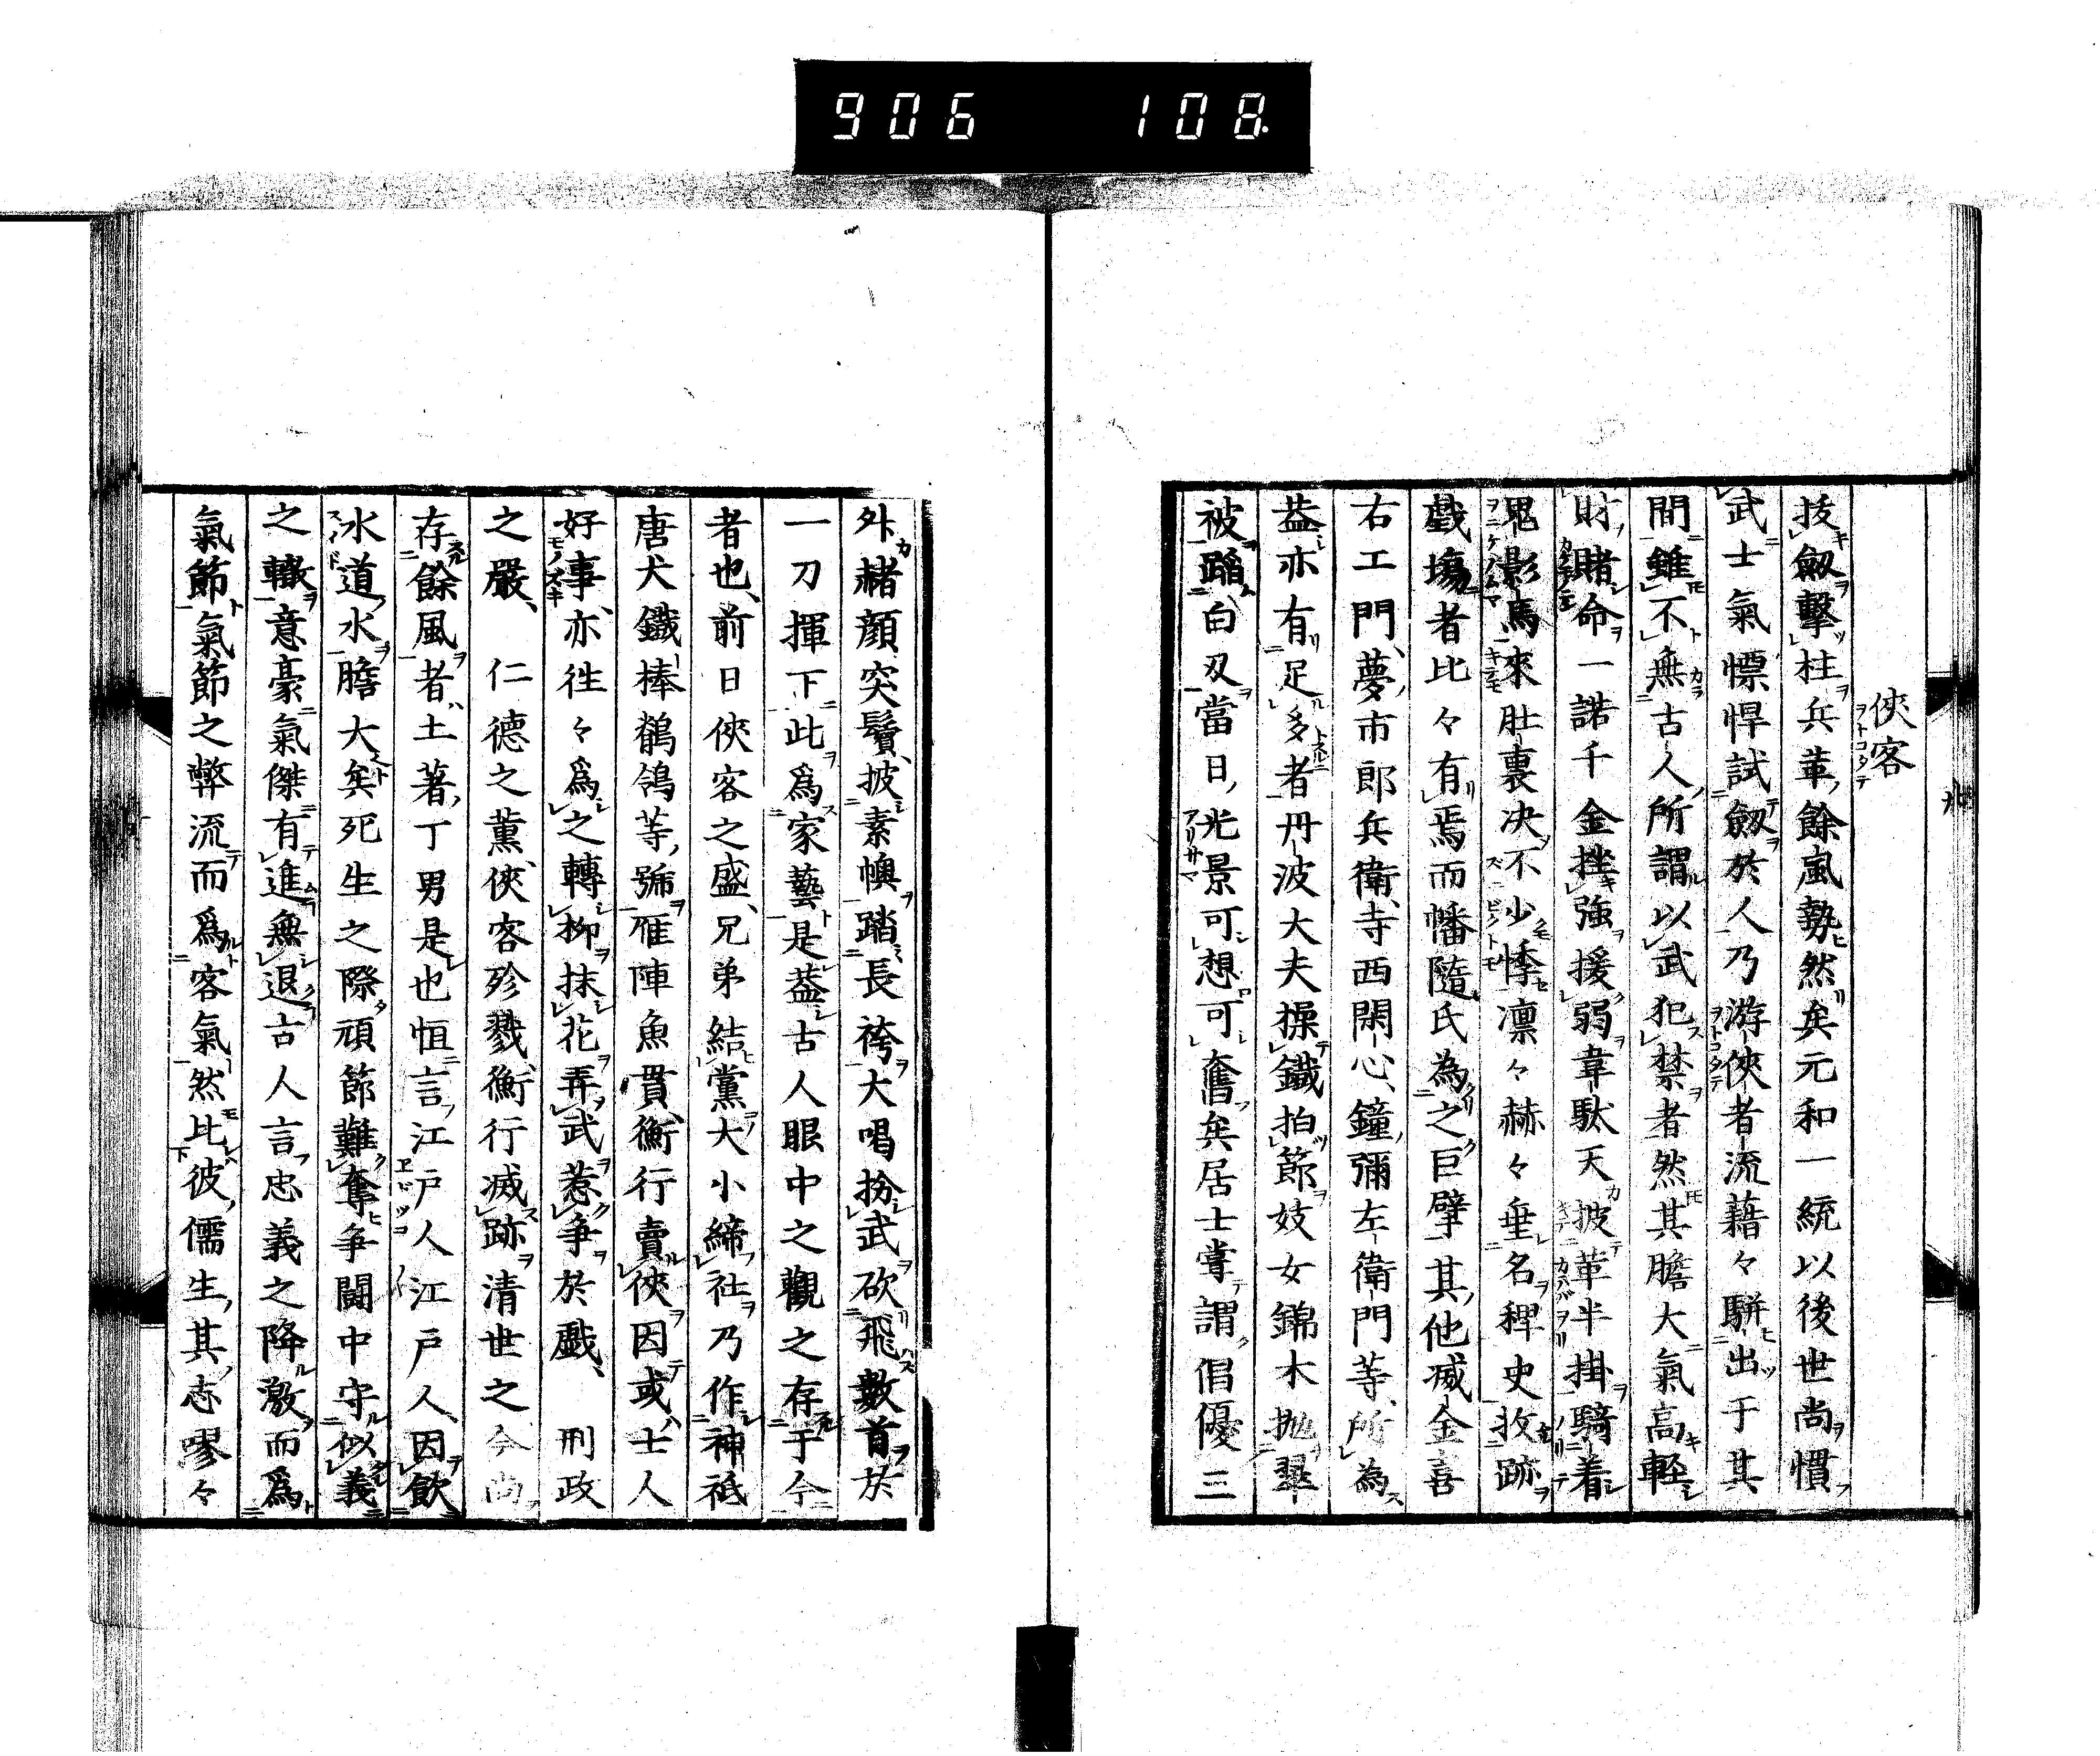 906 108
俠客
拔劔擊柱兵革餘風勢然矣元和一統以後世尚慣
武士氣慓悍試劔於人乃游俠者流藉々駢出于其
間雖不無古人所謂以武犯禁者然其膽大氣高輕
財賭命一諾千金挫強援弱韋駄天披革半掛騎着
鬼影馬來肚裏决不少悸凛々赫々垂名稗史牧跡
戲塲者比々有焉而幡隨氏為之巨擘其他减金喜
右工門夢市郎兵衛寺西閑心鐘彌左衛門等所為
葢亦有足多者丹波大夫操鐵拍節妓女錦木抛翠
被蹈白刄當日光景可想可奮矣居士嘗謂倡優三
外赭顔突鬢披素襖踏長袴大唱扮武砍飛數首於
一刀揮下此爲家藝是葢古人眼中之觀之存于今
者也前日俠客之盛兄弟結黨大小締社乃作神祇
唐犬鐵棒鶺鴒等號雁陣魚貫衡行賣俠因或士人
好事亦徃々爲之轉柳抹花弄武惹爭於戲刑政
之嚴仁德之薫俠客殄戮衡行滅跡清世之今尚
存餘風者土著丁男是也恒言江戸人江戸人因飲
水道水膽大矣死生之際頑節難奪爭鬪中守似義
之轍意豪氣傑有進無退古人言忠義之降激而爲
氣節氣節之弊流而爲客氣然比彼儒生其志嘐々